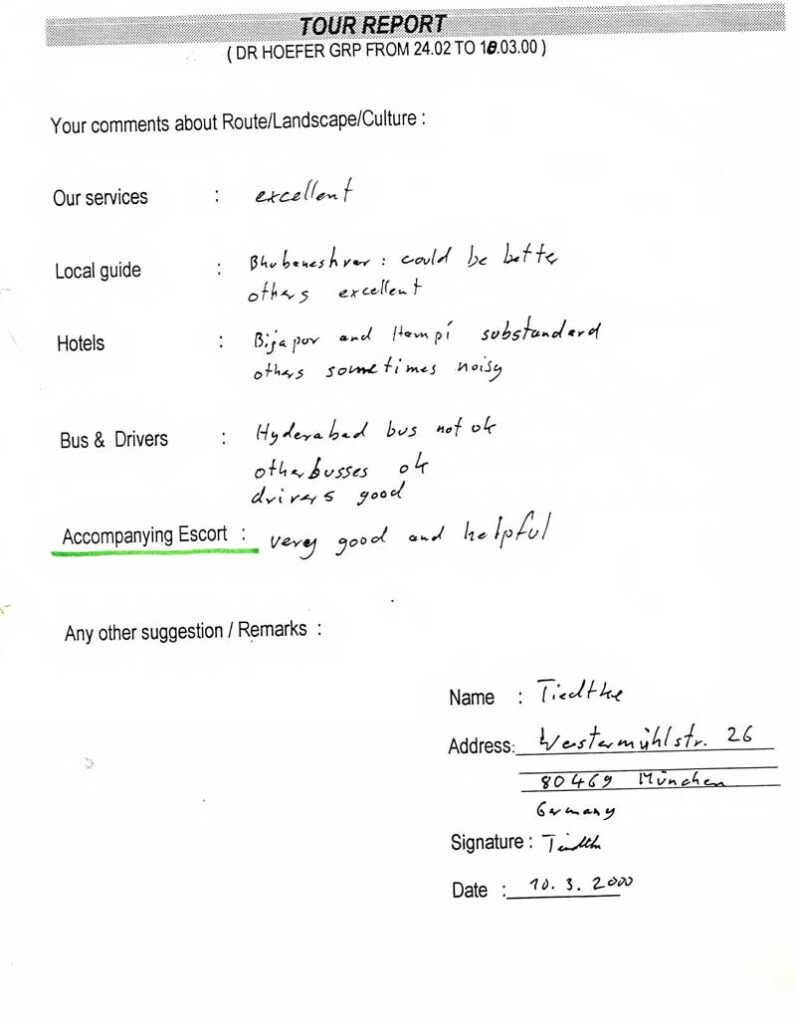 TOUR REPORT
( DR HOEFER GRP FROM 24.02 TO 10.03.00 )
Your comments about Route/Landscape/Culture :
Our services : excellent
Local guide : Bhubaneshvar : could be bette
others excellent
Hotels : Bijapur and Hampi substandard
others sometimes noisy
Bus & Drivers : Hyderabad bus not ok
other busses ok
drivers good
Accompanying Escort : very good and helpful
Any other suggestion / Remarks :
Name : Tiedtke
Address: Westermühlstr. 26
80469 München
Germany
Signature : Tiedtke
Date : 10. 3. 2000